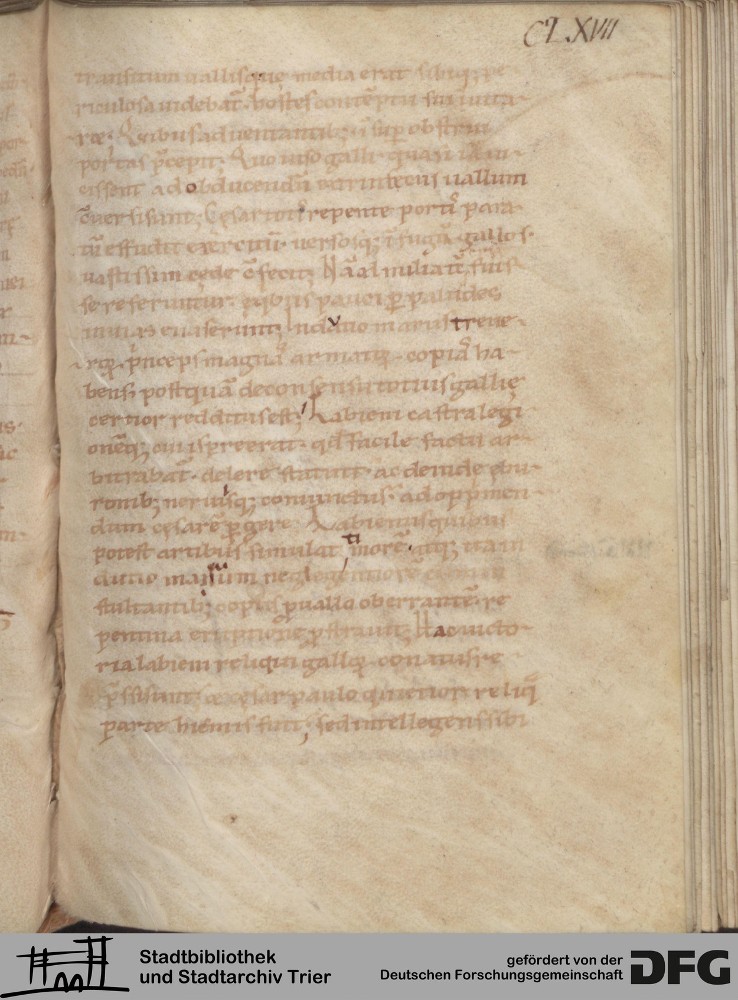 CLXVII
transitum vallisque media erat sibiq; pe
riculosa videbat̄. hostes contēptu sui irrita-
re; ad ventantib;
portas p̄cepit; Quo viso galli quasi iā in-
cissent ad obducendū extrinsecus vallum
cōversi sunt; Cesar totis repente portis para-
tū effudit exercitū. versosq; ī fugā gallos
vastissima cede cōfecit; Nā al milia tc̄ fuis-
se referuntur. ex qb; pauci p paludes
invias evaserunt; Indutiomarus treve-
roꝝ princeps magnā armatoꝝ copiā ha-
bens. postquā de consensu totius galliȩ
certior redditus est; Labieni castra legi-
onēq; cui is preerat. qd̄ facile factu ar-
bitrabat̄. delere statuit. ac deinde ebu-
ronib; nerviisq; coniunctus. ad opp̄rimen-
dum cesarē pgere; Labienus quibus
potest artibus simulat timorē. atq; ita in
dutiomarum neglegentiorē cum in
sultantib; copiis p vallo oberrantē. re
pentina eruptione pstravit; Hac victo-
ria labieni reliqui galloꝝ conatus re
p̄ssi sunt. et cesar paulo quietior reliq̄
parte hiemis fuit; sed intellegens sibi
Stadtbibliothek
und Stadtarchiv Trier
gefördert von der
Deutschen Forschungsgemeinschaft
DFG